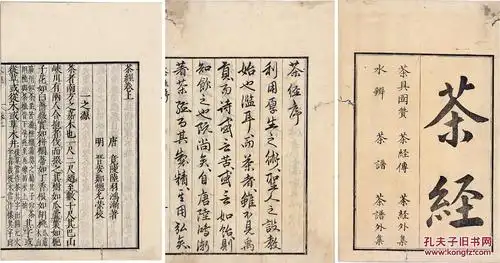 茶經
茶具圖贊 茶經傳 茶經外集
水辨 茶譜 茶譜外集
茶經序
利用厚生之術聖人之設教
始也濫耳而茶者雖不見為
貢而詩或云苦或云如飴則
知飲之也既尚矣自唐陸鴻漸
著茶經為其製精其用弘矣
茶經卷上
唐 竟陵陸羽鴻漸著
明 晉安鄭熜允榮校
一之源
茶者南方之嘉木也一尺二尺迺至數十尺其巴山
峽川有兩人合抱者伐而掇之其樹如瓜蘆葉如梔
子花如白薔薇實如栟櫚
孔夫子旧书网